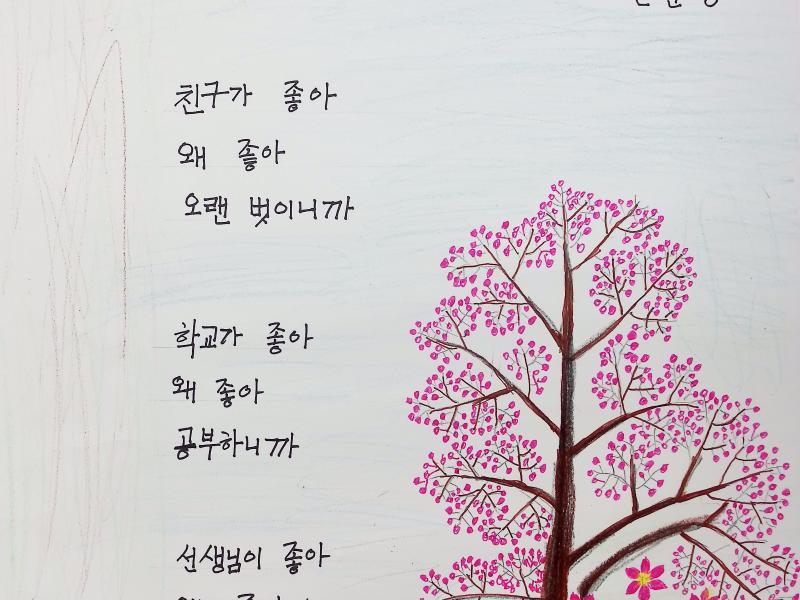 친구가 좋아
왜 좋아
오랜 벗이니까
학교가 좋아
왜 좋아
공부하니까
선생님이 좋아